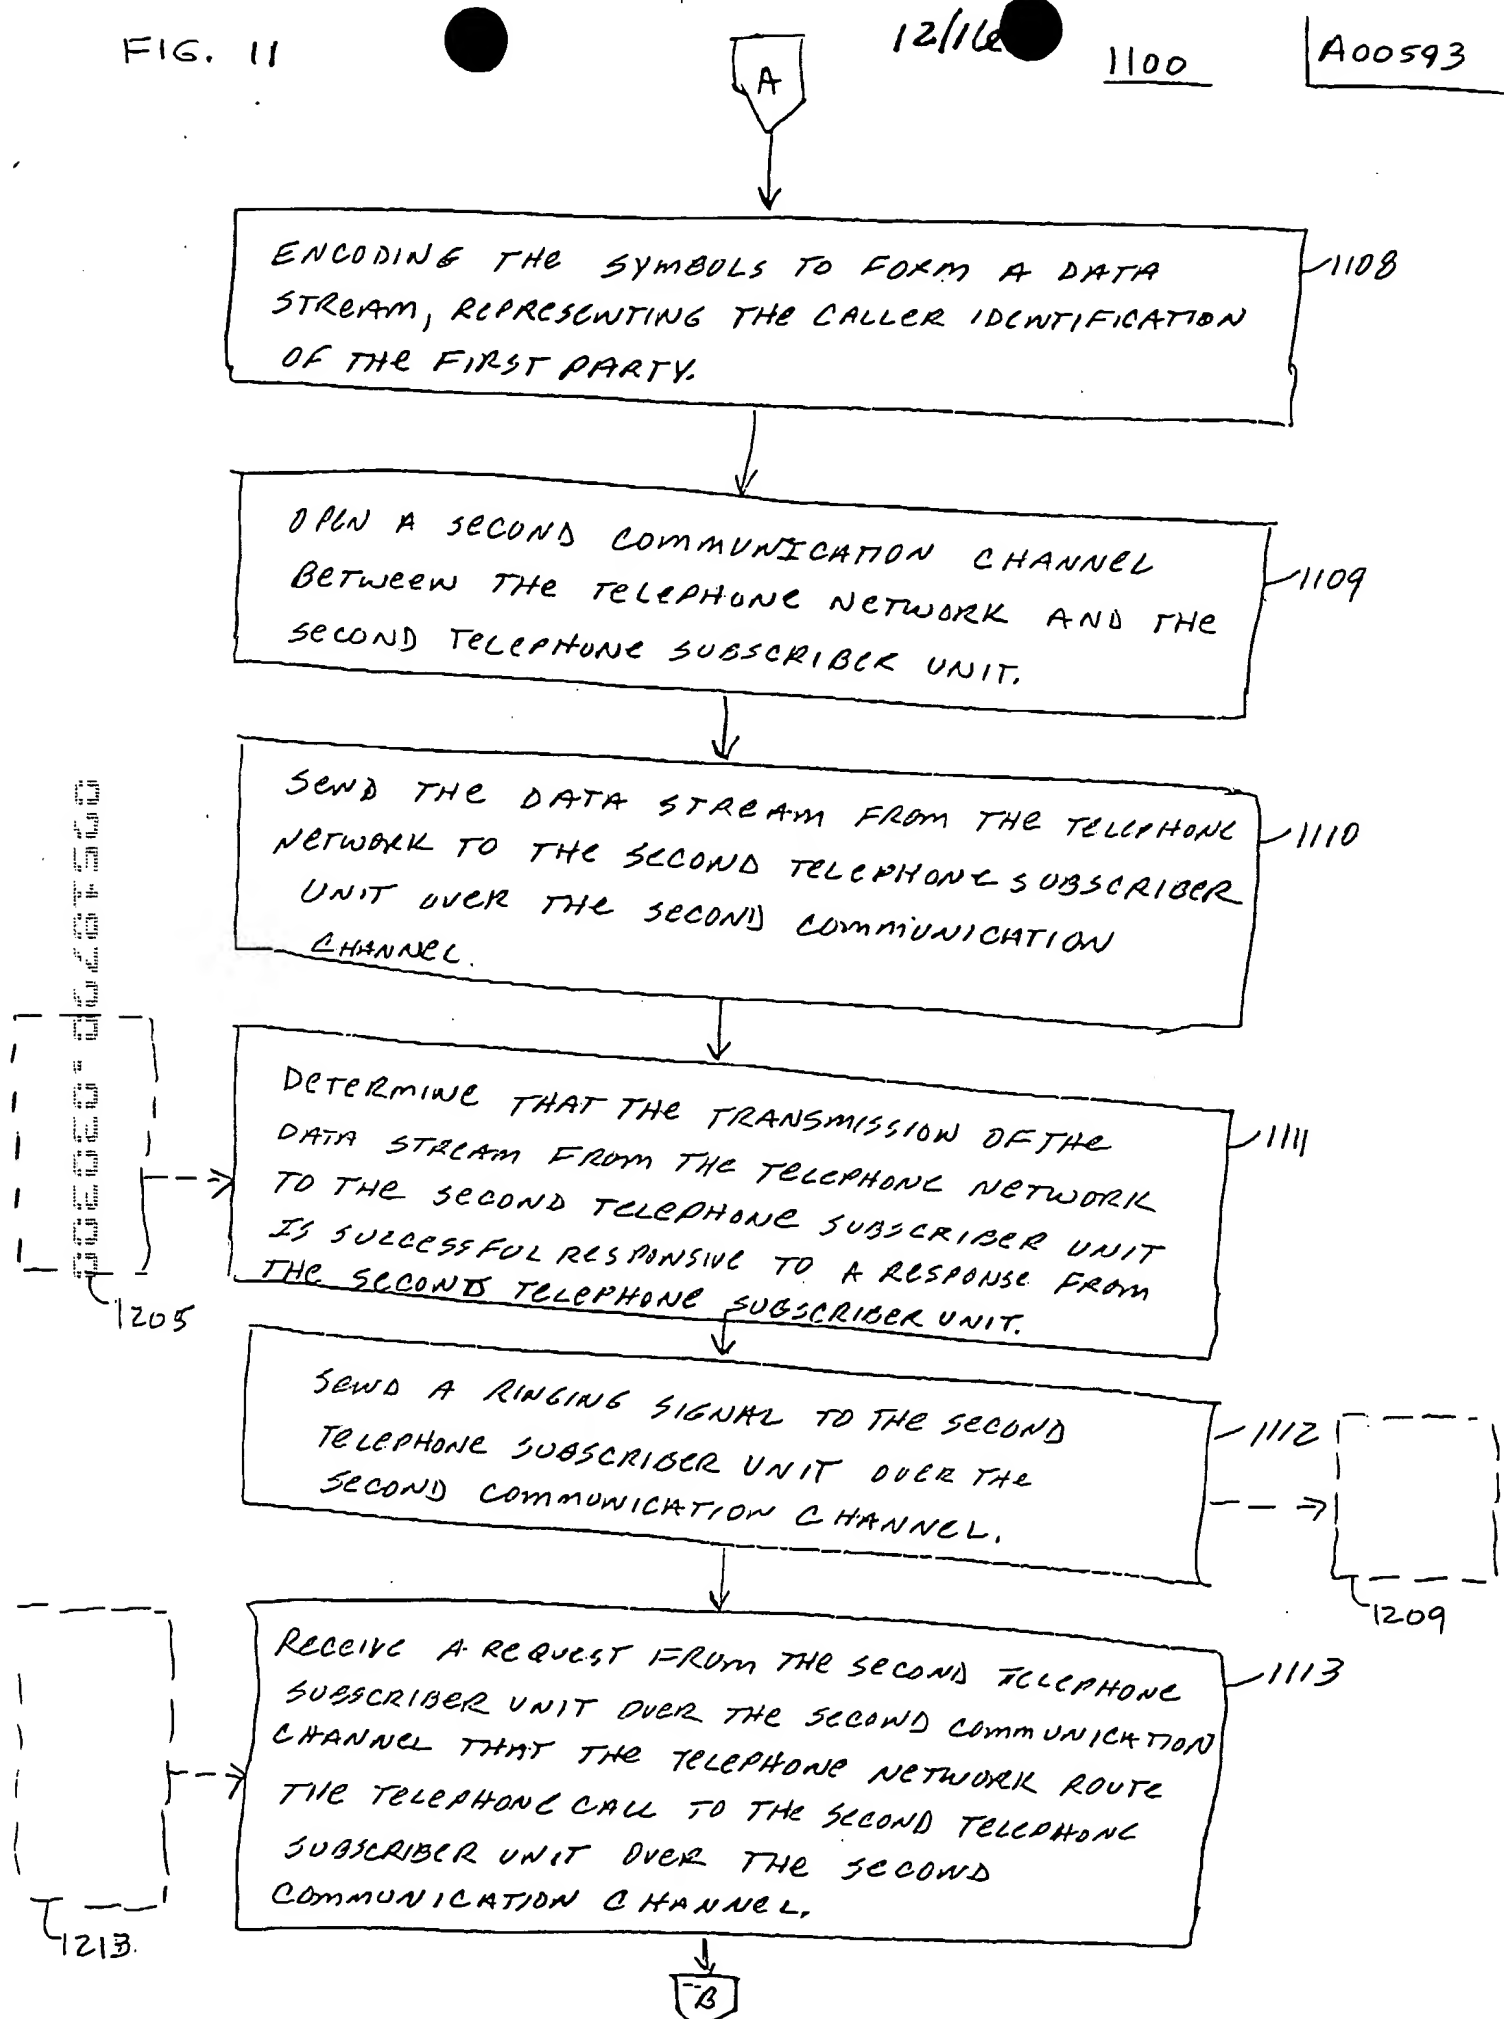 FIG. 11
12/16
1100
A00593
A
ENCODING THE SYMBOLS TO FORM A DATA
STREAM, REPRESENTING THE CALLER IDENTIFICATION
OF THE FIRST PARTY.
1108
OPEN A SECOND COMMUNICATION CHANNEL
BETWEEN THE TELEPHONE NETWORK AND THE
SECOND TELEPHONE SUBSCRIBER UNIT.
1109
SEND THE DATA STREAM FROM THE TELEPHONE
NETWORK TO THE SECOND TELEPHONE SUBSCRIBER
UNIT OVER THE SECOND COMMUNICATION
CHANNEL.
1110
DETERMINE THAT THE TRANSMISSION OF THE
DATA STREAM FROM THE TELEPHONE NETWORK
TO THE SECOND TELEPHONE SUBSCRIBER UNIT
IS SUCCESSFUL RESPONSIVE TO A RESPONSE FROM
THE SECOND TELEPHONE SUBSCRIBER UNIT.
1111
1205
SEND A RINGING SIGNAL TO THE SECOND
TELEPHONE SUBSCRIBER UNIT OVER THE
SECOND COMMUNICATION CHANNEL.
1112
1209
RECEIVE A REQUEST FROM THE SECOND TELEPHONE
SUBSCRIBER UNIT OVER THE SECOND COMMUNICATION
CHANNEL THAT THE TELEPHONE NETWORK ROUTE
THE TELEPHONE CALL TO THE SECOND TELEPHONE
SUBSCRIBER UNIT OVER THE SECOND
COMMUNICATION CHANNEL.
1113
1213.
B